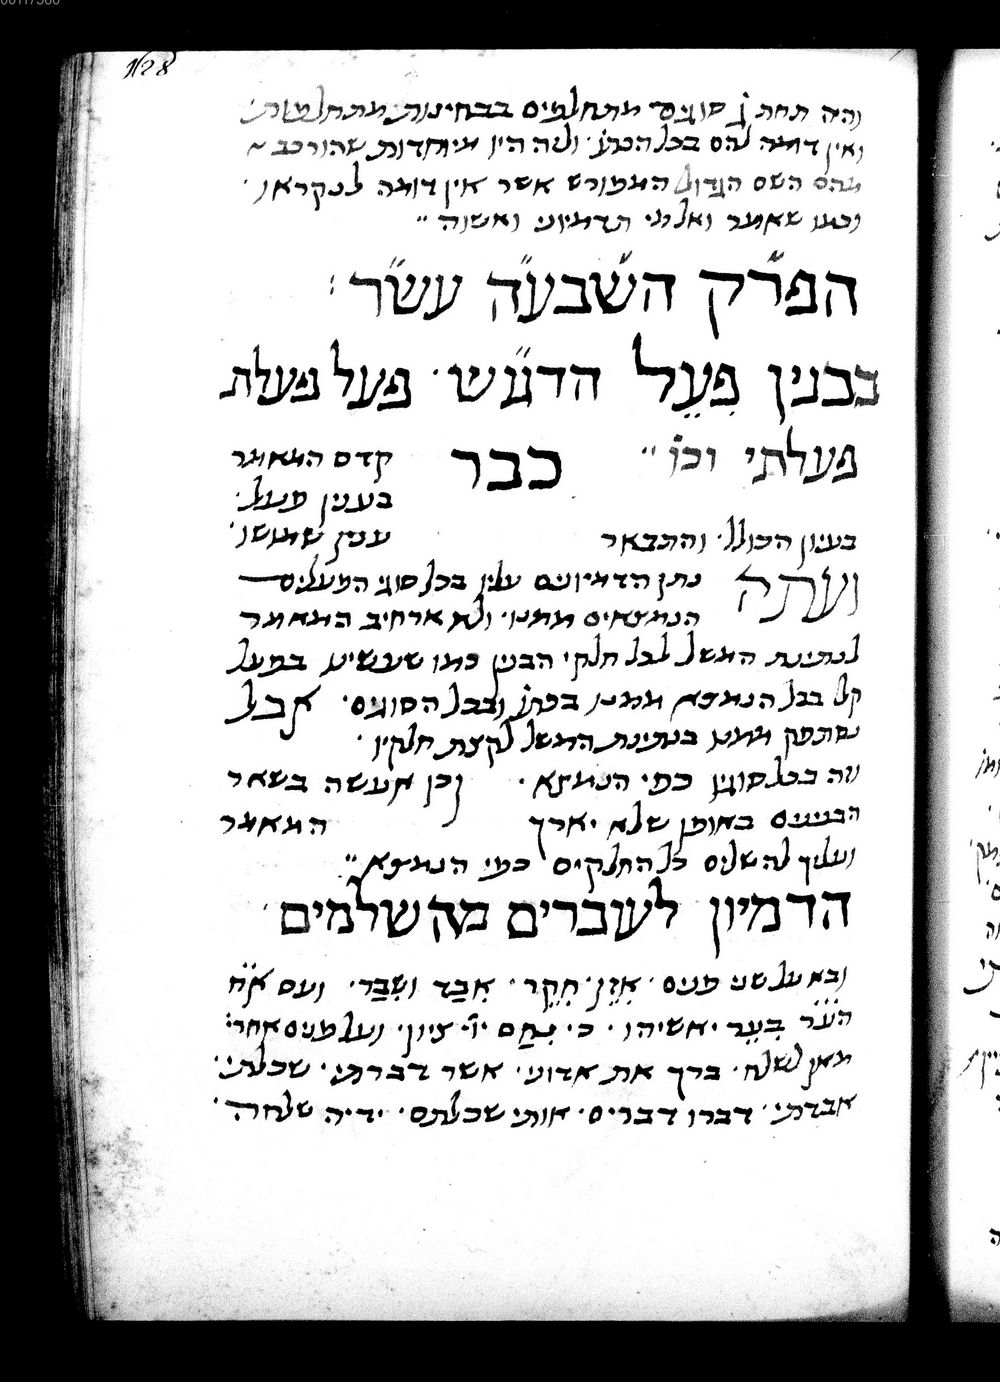 128
והיה תחת ג̇ סוגים מתחלפים בבחינות מתחלפות
ואין דומה להם בכל הכתו׳ ולזה היו מיוחדות שהורכב
מהם השם הגדול המפורש אשר אין דומה לנקראו
וכמו שאמר ואל מי תדמיוני ואשוה
הפרק השבעה עשר :
בבנין פִעֵל הדגש · פעל פעלת
פעלתי וכו׳
כבר
קדם המאמר
בענין פעל
בעיון הכולל · והתבאר
ענין שמושו ·
ועתה
נתן הדמיונים עליו בכל סוגי הפעלים
הנמצאים ממנו · ולא ארחיב המאמר
לנתינת המשל לכל חלקי הבנין כמו שעשינו בפעל
קל בכל הנמצא ממנו בכתו׳ ובכל הסוגים · אבל
נסתפק ממנו בנתינת המשל לקצת חלקיו ·
וזה בכל סוגיו כפי הנמצא · וכן אעשה בשאר
הבנינים באופן שלא יארך
המאמר
ועליך להשלים כל החלקים כפי הנמצא
הדמיון לעוברים מהשלמים
ובא על שני פנים · אִזֵן · חִקֵר · אִבַד ושִבַר · ועם א״ח
הע״ר בִעֵר יאשיהו · כי נִחַם יי׳ ציון · ועל פנים אחרי׳
מאן לשלח · ברך את אדוני · אשר דברתי · שכלתי ·
אבדתי · דברו דברים · אותי שכלתם · ידיה שלחה ·